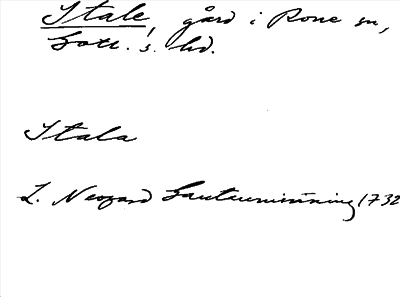 Stale, gård i Rone sn,
Gotl. s. hd.
Stala
L. Neogard Gauteminning 1732